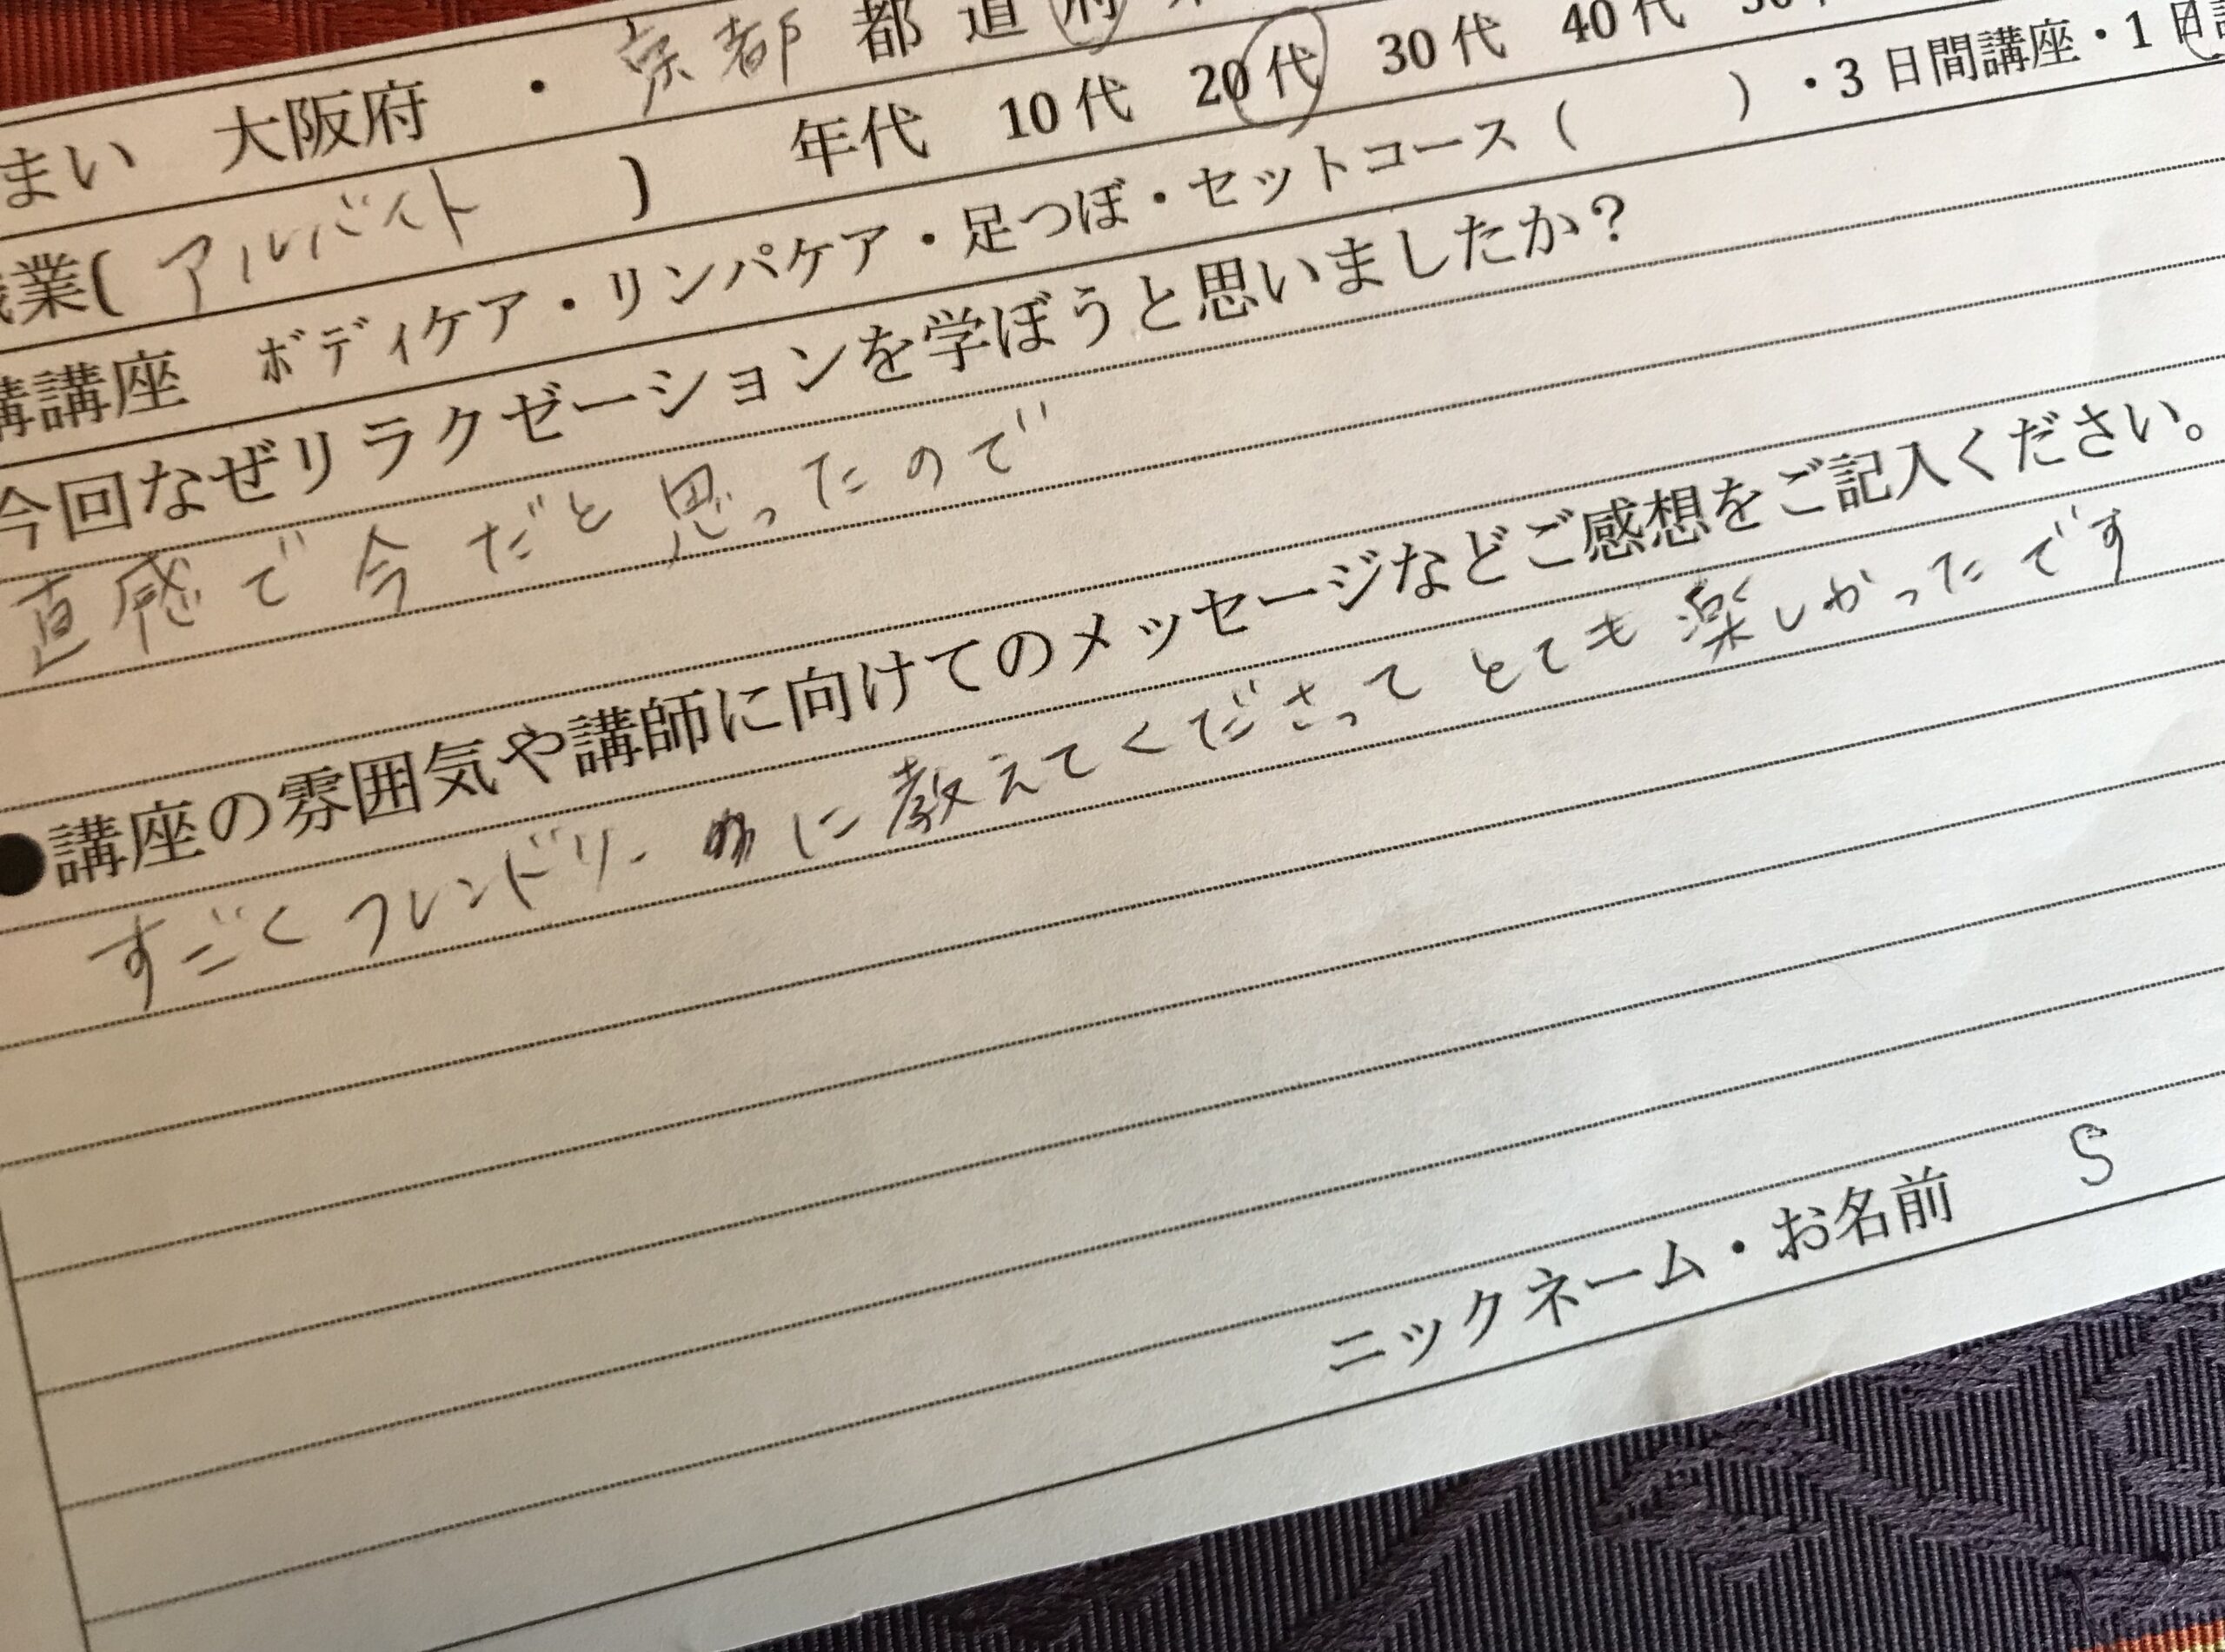 まい 大阪府 ・ 京都 都 道 府
業( アルバイト ) 年代 10代 20代 30代 40代
講講座 ボディケア・リンパケア・足つぼ・セットコース ( )・3日間講座・1日
今回なぜリラクゼーションを学ぼうと思いましたか?
直感で今だと思ったので
●講座の雰囲気や講師に向けてのメッセージなどご感想をご記入ください。
すごくフレンドリーに教えてくださってとても楽しかったです
ニックネーム・お名前 S